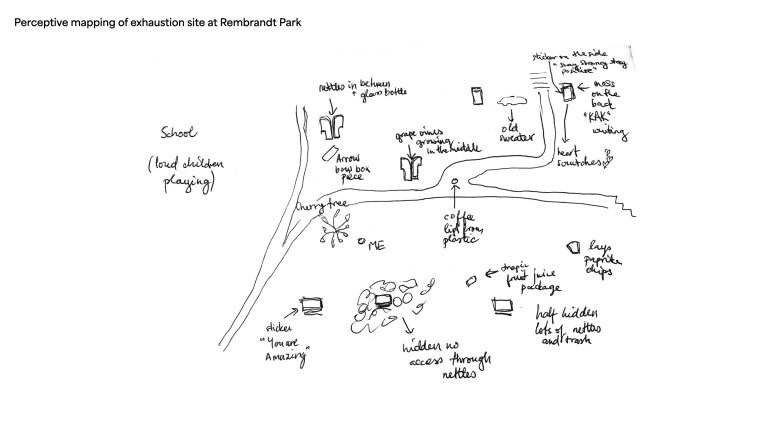 Perceptive mapping of exhaustion site at Rembrandt Park
sticker on the side
"stay strong stay
positive"
nettles in between
+ glass bottle
moss
on the
back
"KAK"
writing
School
(loud children
playing)
old
sweater
grape vines
growing
in the middle
heart
scratches
Arrow
bow box
piece
Cherry tree
coffee
lid from
plastic
ME
lays
paprika
chips
tropic
fruit juice
package
sticker
"You are
Amazing"
half hidden
lots of nettles
and trash
hidden no
access through
nettles